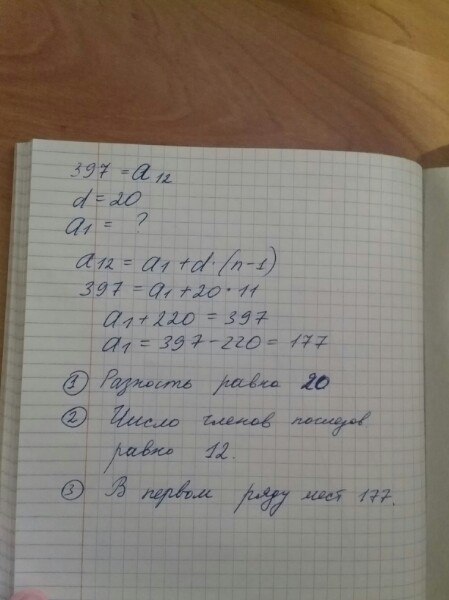 397 = a₁₂
d = 20
a₁ = ?
a₁₂ = a₁ + d · (n-1)
397 = a₁ + 20 · 11
a₁ + 220 = 397
a₁ = 397 - 220 = 177
① Разность равна 20
② Число членов последов
равно 12.
③ В первом ряду мест 177.